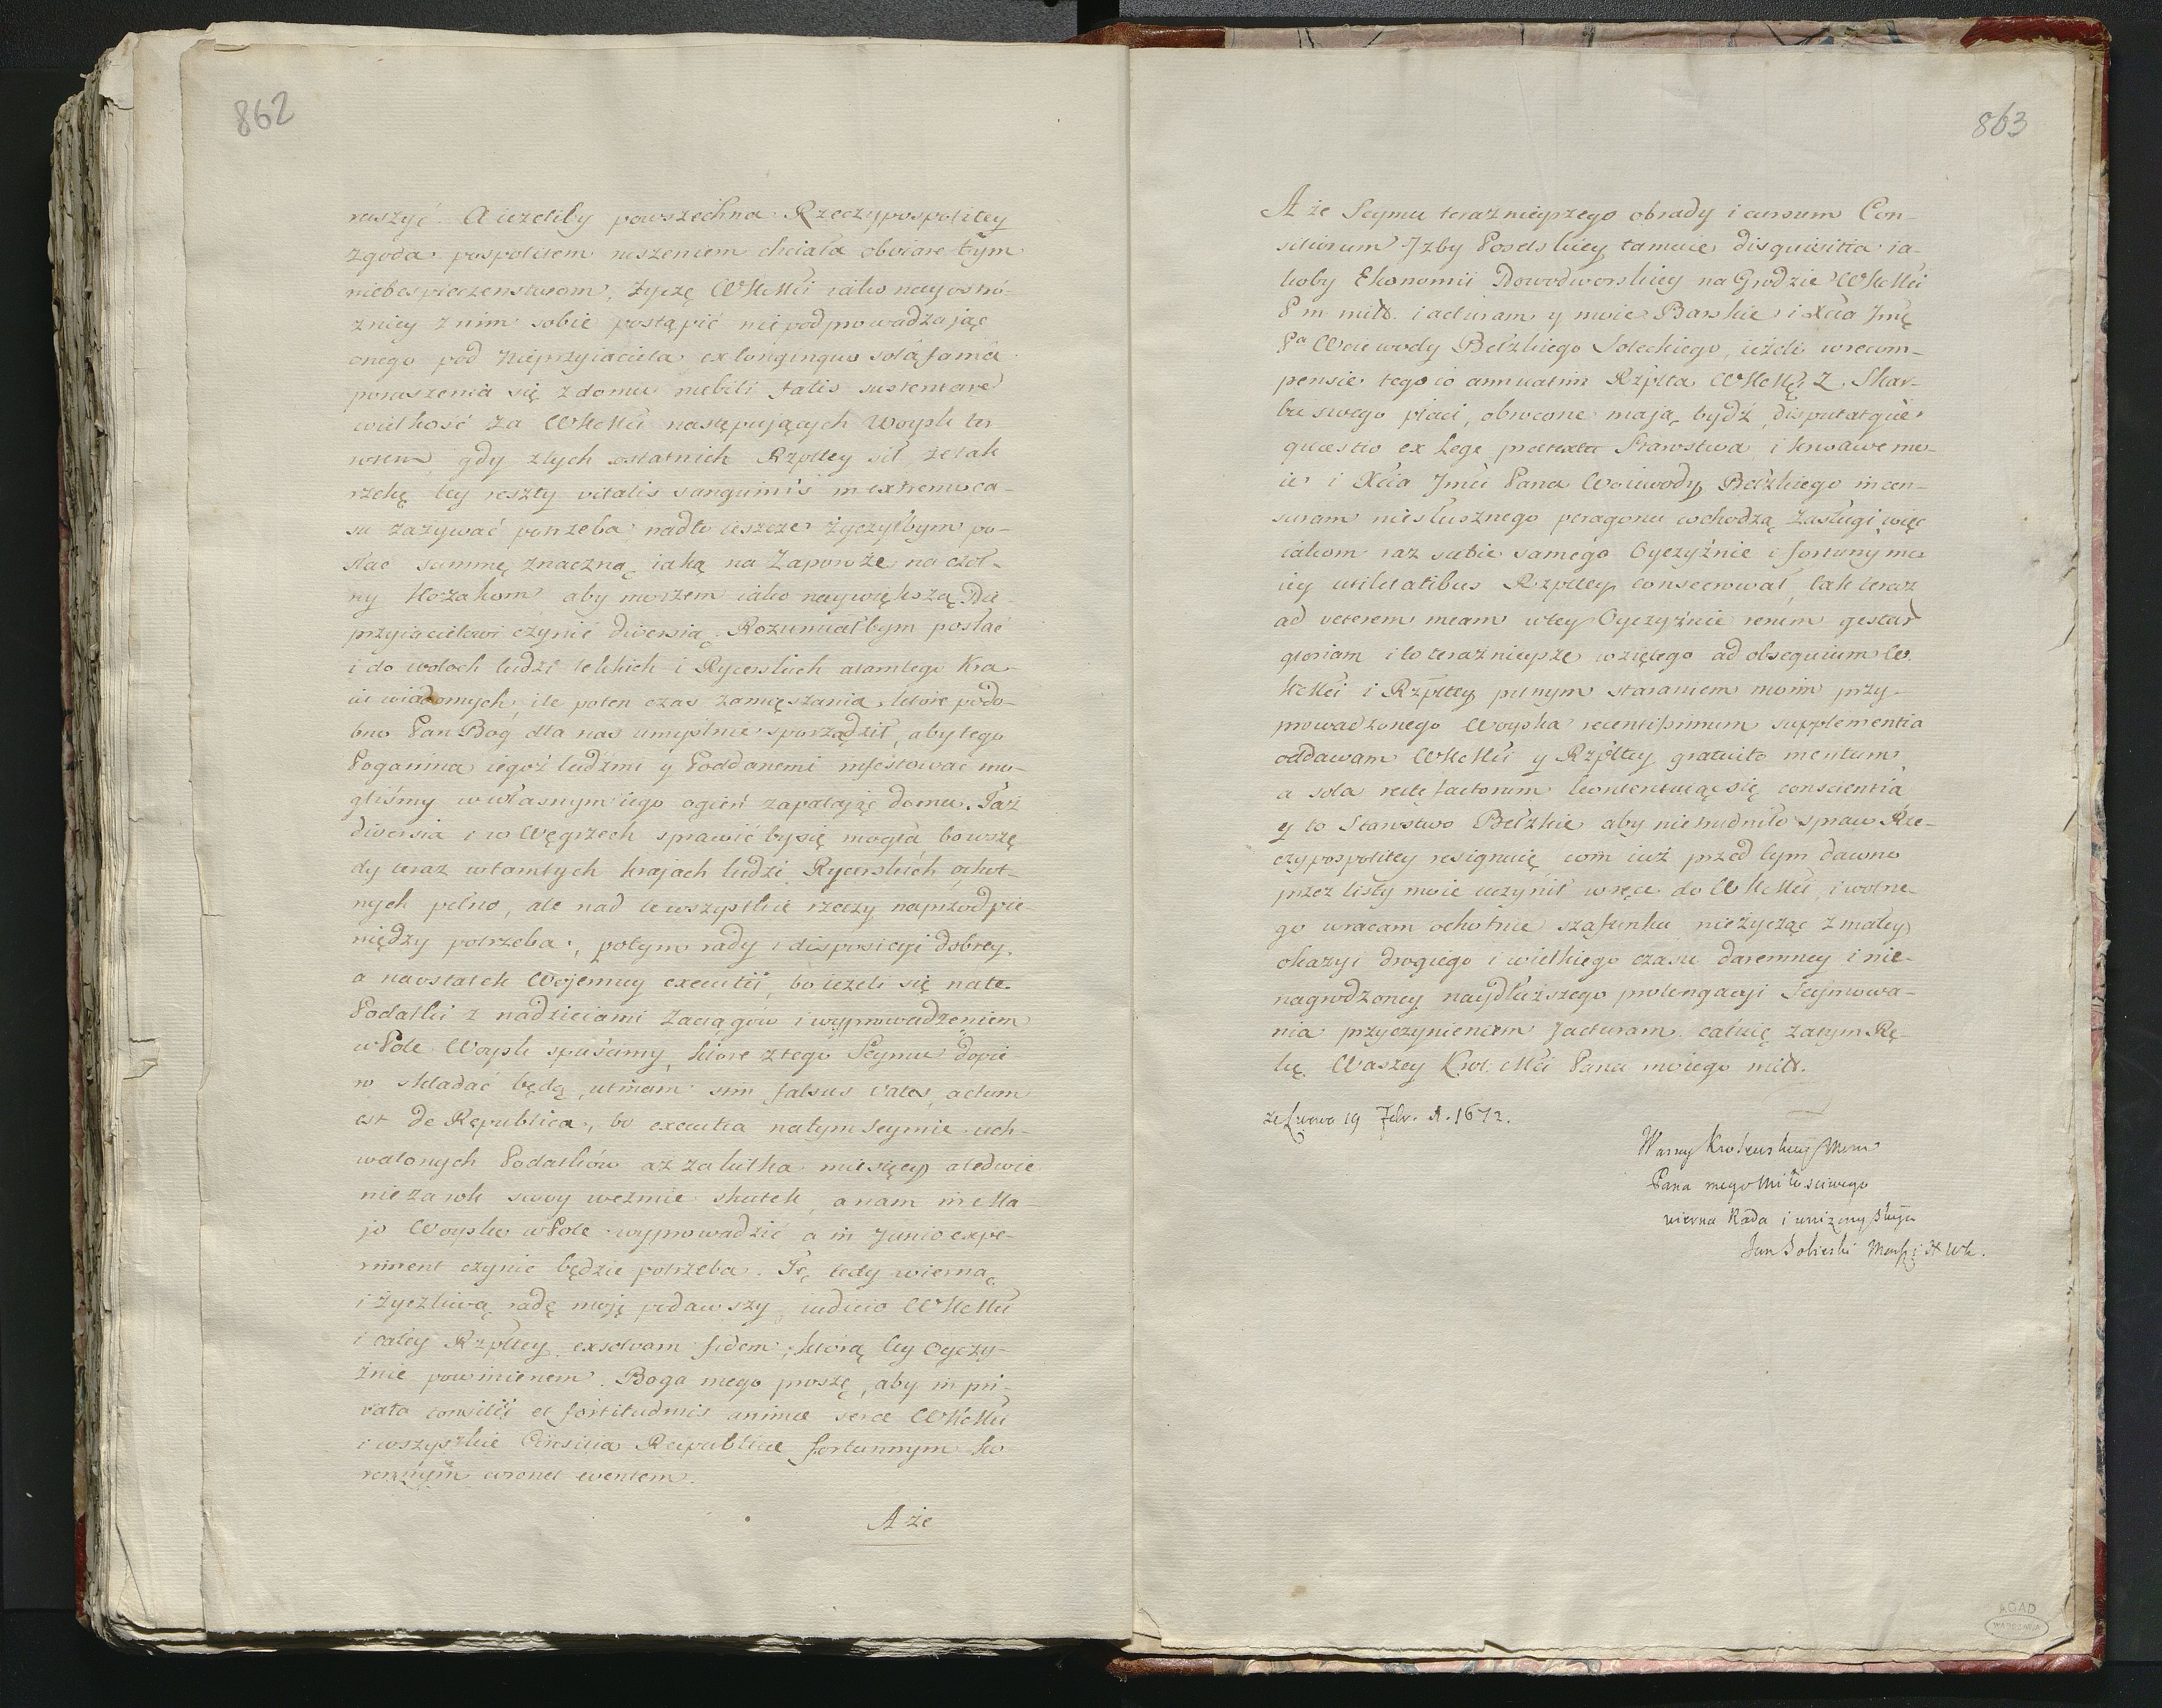 862
ruszyć. A ieżeliby powszechna Rzeczypospolitey
zgoda pospolitem ruszeniem chciała obviare tym
niebespieczenstwom, życzę WKMći iako nayostro-
żniey z nim sobie postąpić nie podprowadzając
onego pod Nieprzyiaciela ex longinquo solâ famâ
poruszenia się z domu mobili talis sustentare
wielkość za WKMći następujących Woysk
gdy z tych ostatnich Rzpltey sił że tak
rzekę tey reszty vitalis sanguinis in extremo ca-
su zażywać potrzeba nadto ieszcze życzyłbym po-
słać summę znaczną iaką na Zaporoże na czoł-
ny Kozakom aby morzem iako naywiększą
przyiacielowi czynić diversią. Rozumiałbym posłać
i do Wołoch ludzi lekkich i Rycerskich a tamtego Kra-
iu wiadomych, ile po ten czas zamięszania, które podo-
bno Pan Bog dla nas umyślnie sporządził, aby tego
Poganina iegoż ludźmi y Poddanemi infestować mo-
gliśmy w własnym iego ogień zapalając domu. Taż
diversia i w Węgrzech sprawić by się mogła, bo wszę
dy teraz w tamtych krajach ludzi Rycerskich ochot-
nych pełno, ale nad te wszystkie rzeczy naprzod pie-
niędzy potrzeba, potym rady i disposicyi dobrey,
a naostatek Wojenney executii, bo ieżeli się na te
Podatki z nadzieiami Zaciągów i wyprowadzeniem
w Pole Woysk spuścimy, które z tego Seymu dopie-
ro składać będą, utinam sim falsus vates, actum
est de Republica, bo executia na tym Seymie uch-
walonych Podatków aż za kilka miesięcy aledwie
nie za rok swoy weźmie skutek, a nam in Ma-
jo Woysko w Pole wyprowadzić a in Junio expe-
riment czynic będzie potrzeba. Tę tedy wierną
i życzliwą radę moję podawszy iudicio WKMći
i całey Rzpltey exsolvam fidem, którą tey Oyczy-
źnie powinienem. Boga mego proszę, aby in pri-
vata consilii et fortitudinis animæ serce WKMći
i wszystkie Consilia Reipublicæ fortunnym ko
ronnym coronet eventem.
A że
863
A że Seymu teraznieyszego obrady i cursum Con-
siliorum Izby Poselskiey tamuie disquisitia ia-
koby Ekonomii Nowodworskiey na Grodzie WKMći
P m miłł. iacturam y moie Barskie i Xcia Jmę
Pa Woiewody Bełzkiego Soleckiego, ieżeli w recom-
pensie tego co annuatim Rzplta WKMći z Skar-
bu swego płaci, obrocone mają bydź, disputatque
quæstio ex Lege prætextu Starostwa i krwawe mo-
ie i Xcia Jmći Pana Woiewody Bełzkiego in cen-
suram niesłusznego paragonu wchodzą Zasługi, więc
iakom raz siebie samego Oyczyźnie i fortuny mo-
iey utilitatibus Rzpltey consecrował, tak teraz
ad veterem meam w tey Oyczyźnie rerum gestar
gloriam i to teraźnieysze wziętego ad obsequium W.
KMći i Rzpltey pilnym staraniem moim przy-
prowadzonego Woyska recentissimum supplementia
oddawam WKMći y Rzpltey gratuito mentum,
a sola recte factorum kontentując się conscientia
y to Starostwo Bełzkie aby nie trudniło spraw Rze-
czypospolitey resignuię com iuż przed tym dawno
przez listy moie uczynił w ręce do WKMći, i wolne-
go wracam ochotnie szafunku nieżycząc z małey
okazyi drogiego i wielkiego czasu daremney i nie-
nagrodzoney naydłuższego prolongacyi Seymowa-
nia przyczynieniem Jacturam. całuię zatym Rę-
kę. Waszey Krol. Mći Pana moiego miłł.
ze Lwowa 19 Febr. A. 1672.
Waszey Krolewskiey Mosci
Pana mego Miłosciwego
wierna Rada i unizony sługa
Jan Sobieski Marsz i H WK.
AGAD
WARSZAWA